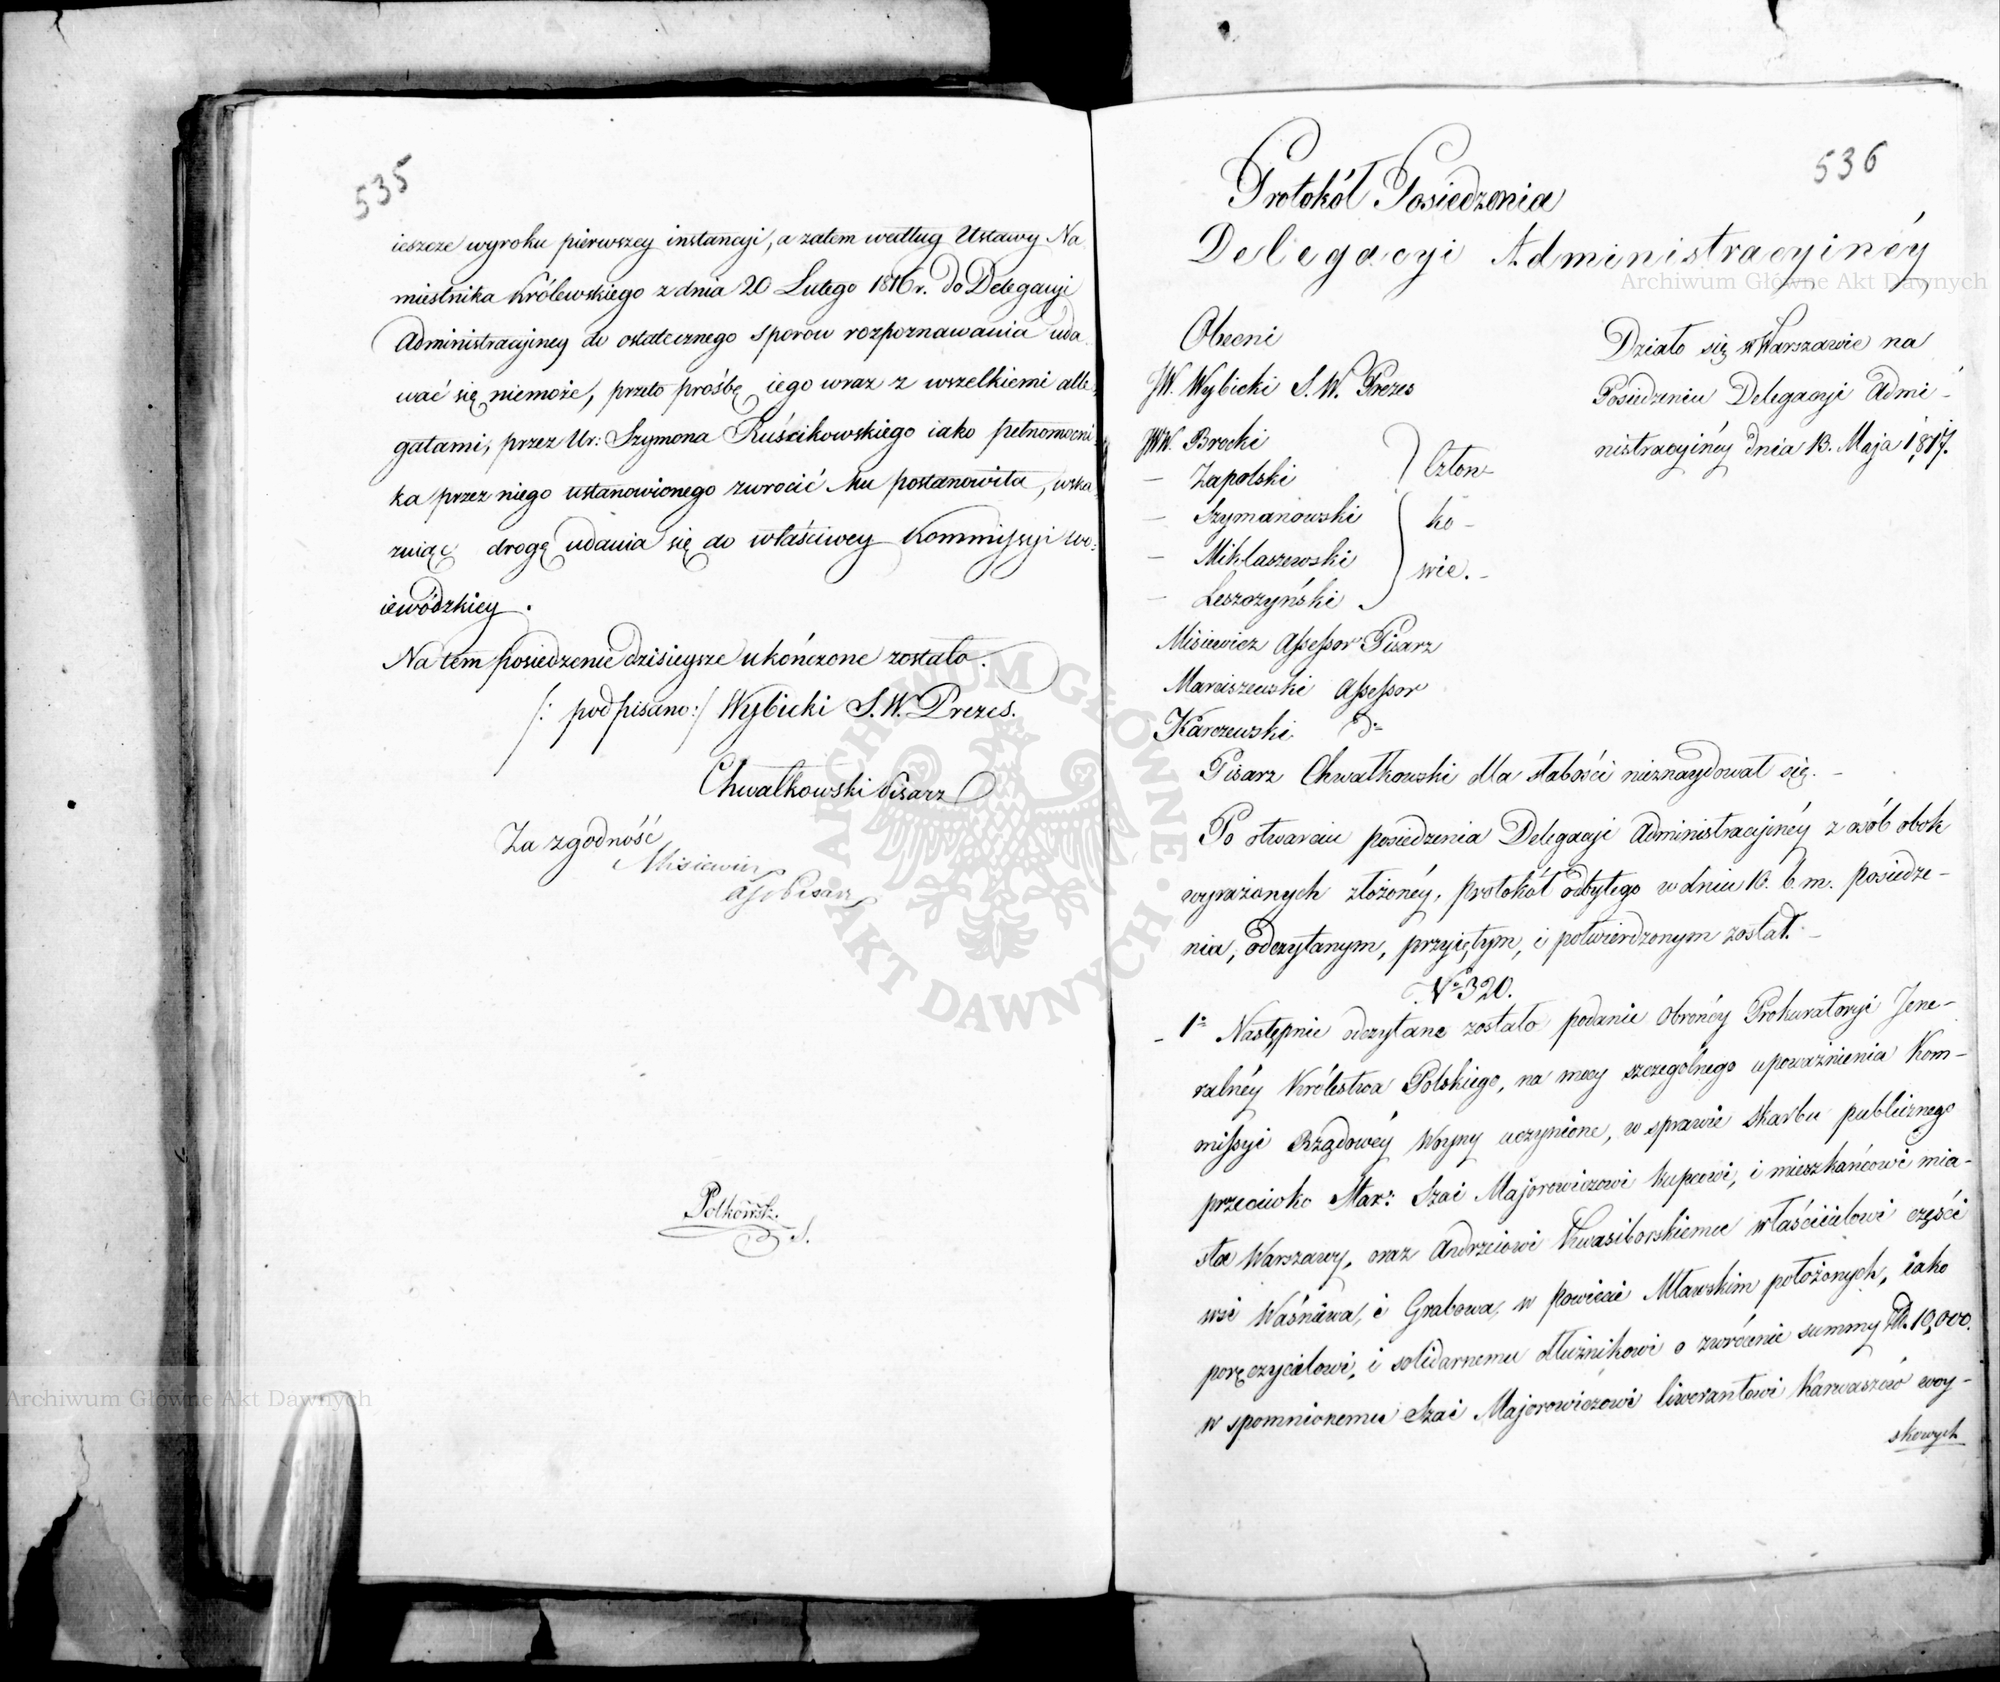 535
ieszcze wyroku pierwszey instancyi, a zatem według Ustawy Na
miestnika Królewskiego z dnia 20 Lutego 1816 r. do Delegacyi
Administracyiney do ostatecznego sporow rozpoznawania uda
wać się niemoże, przeto prośbę iego wraz z wszelkiemi alle,
gatami, przez Ur: Szymona Ruścikowskiego iako pełnomocni
ka przez niego ustanowionego zwrocić Mu postanowiła, wska
zuiąc drogę udania się do właściwey Kommissyi wo:
iewódzkiey.
Na tem posiedzenie dzisieysze ukończone zostało.
/: podpisano:/ Wybicki S.W. Prezes.
Chwałkowski Pisarz
Za zgodność
Misiewicz
Ass Pisarz
Polkowsk.
S.
536
Protokół Posiedzenia
Delegacyi Administracyinéy
Obecni
JW. Wybicki S. W. Prezes
JWW. Brocki
— Zapolski
— Szymanowski
— Miklaszewski
— Leszczyński
Człon-
ko-
wie.-
Misiewicz Assessor Pisarz
Marciszewski Assessor
Karczewski do
Działo się w Warszawie na
Posiedzeniu Delegacyi Admi-
nistracyinéy dnia 13. Maja 1817.
Pisarz Chwałkowski dla słabości nieznaydował się. -
Po otwarciu posiedzenia Delegacyi Administracyinéy z osób obok
wyrażonych złożonéy, protokół odbytego w dniu 10. b. m. posiedze-
nia, odczytanym, przyiętym, i potwierdzonym został. -
No 320.
- 1o Następnie odczytane zostało podanie Obrońcy Prokuratoryi Jene-
ralnéy Królestwa Polskiego, na mocy szczególnego upoważnienia Kom-
missyi Rządowéy Woyny uczynione, w sprawie Skarbu publicznego
przeciwko Star: Szai Majorowiczowi kupcowi, i mieszkańcowi mia-
sta Warszawy, oraz Andrzeiowi Kwasiborskiemu właścicielowi części
wsi Waśniewa, i Grabowa, w powiecie Mławskim położonych, iako
poręczycielowi, i solidarnemu dłużnikowi o zwrócenie summy Zł. 10,000.
wspomnionemu Szai Majorowiczowi liwerantowi Karwaszów woy-
skowych
Archiwum Główne Akt Dawnych
Archiwum Główne Akt Dawnych
ARCHIWUM GŁÓWNE · AKT DAWNYCH ·